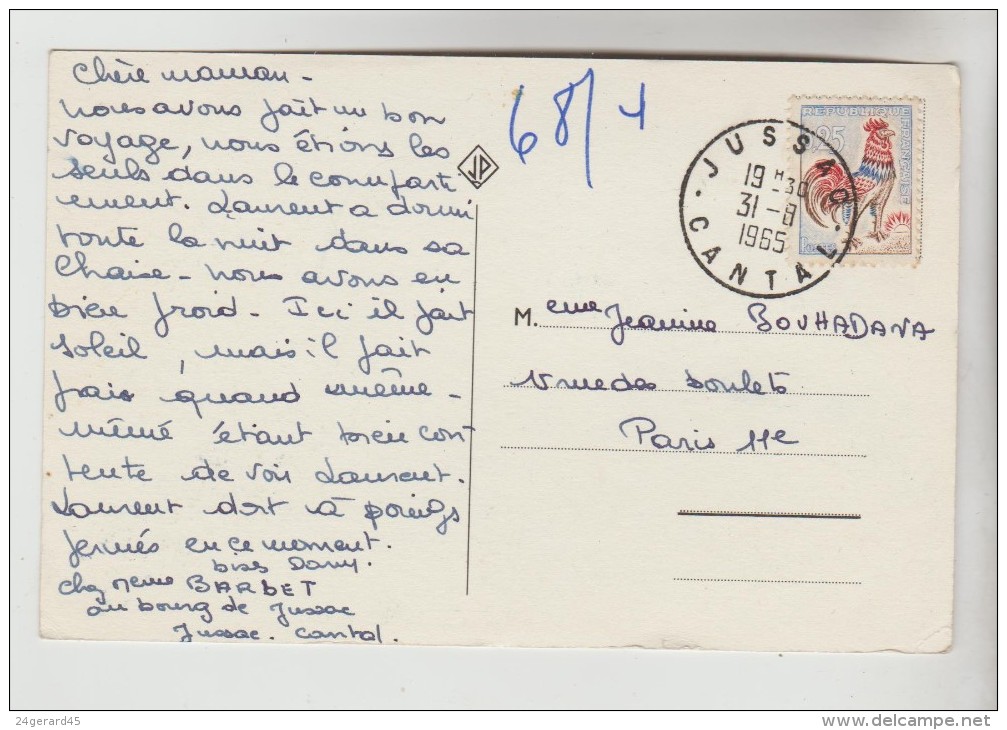 Chère maman -
nous avons fait un bon
voyage, nous étions les
seuls dans le compartе
ement. Laurent a dormi
toute la nuit dans sa
chaise - nous avons eu
bien froid. Ici il fait
soleil, mais il fait
frais quand même -
mémé étant bien con
tente de voir Laurent.
Laurent dort à poings
fermés en ce moment.
bises Dany.
chez Meme BARBET
au bourg de Jussac
Jussac. Cantal.
68/4
JP
REPUBLIQUE FRANÇAISE
0,25
JUSSAC
19 H 30
31-8
1965
CANTAL
M.eme Jeanine BOUHADANA
rue des boulets
Paris 11e
24gerard45
delcampe.net